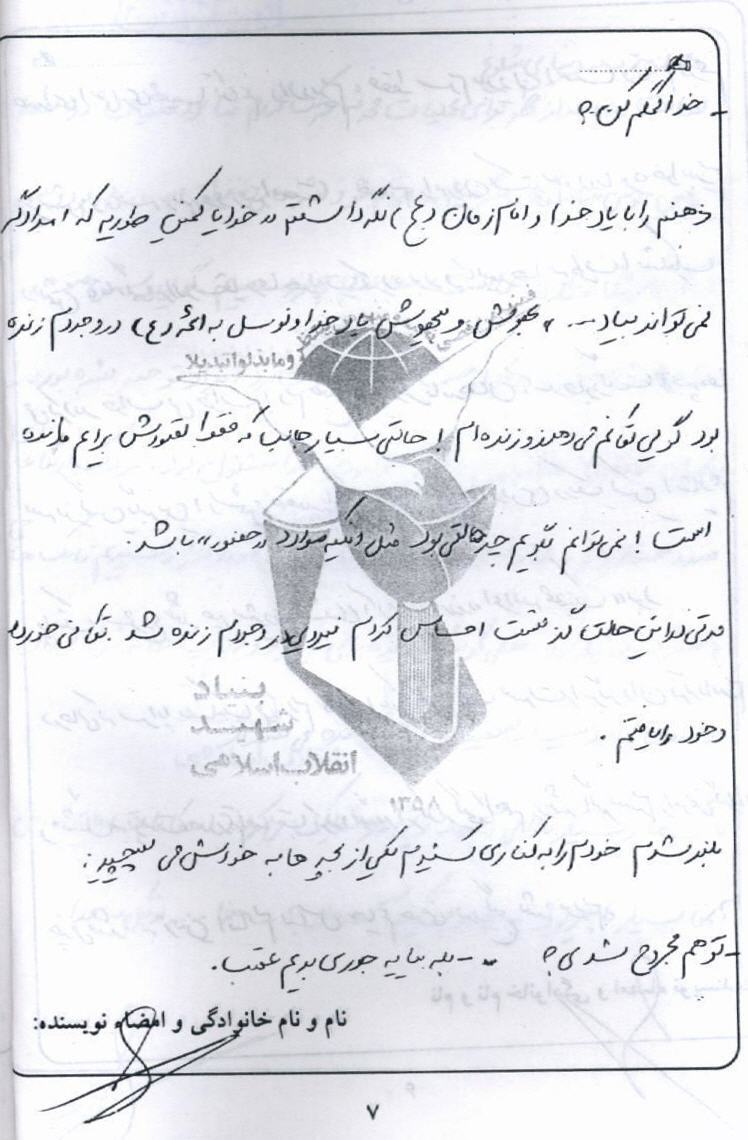 - خدا کمکم کن ؟
ذهنم را با یاد خدا و امام زمان (عج) نگه داشتم در خدایا کمکی طوریه که امدادگر
نمی تواند بیاد ... بیهوش یاد خدا و توسل به ائمه (ع) در وجودم زنده
بود گویی تکانم می دهند و زنده ام ! حالتی بسیار جالب که فقط تصورش برایم مانده
است ! نمی توانم بگویم چه حالتی بود مثل اینکه در حضور باشد .
مدتی در این حالت گذشت احساس کردم نیرویی در وجودم زنده شد . تکانی خوردم
و خود را یافتم .
بلند شدم خودم را به کناری کشیدم یکی از بچه ها به خودش می پیچید :
- تو هم مجروح شدی ؟ - بله بیا یه جوری بریم عقب .
نام و نام خانوادگی و امضاء نویسنده:
بنیاد
شهید
انقلاب اسلامی
۱۳۵۸
و ما بدلوا تبدیلا
۷